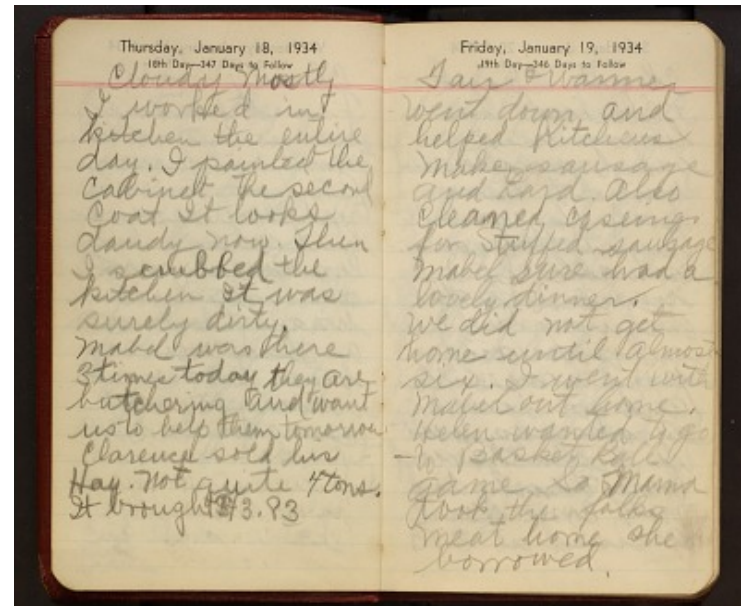 Thursday, January 18, 1934
18th Day—347 Days to Follow
Cloudy Mostly
I worked in
kitchen the entire
day. I painted the
Cabinet the second
Coat It looks
dandy now. Then
I scrubbed the
kitchen it was
surely dirty.
Mabel was there
3 times today they are
butchering and want
us to help them tomorrow
Clarence sold his
Hay. Not quite 4 tons.
It brought $43.83
Friday, January 19, 1934
19th Day—346 Days to Follow
Fair & Warmer
Went down and
helped Kitchens
make sausage
and Lard. Also
Cleaned casings
for Stuffed sausage
Mabel sure had a
lovely dinner.
We did not get
home until almost
six. I went with
Mabel out home.
Helen wanted to go
to Basket Ball
game. So Mama
took the folks
meat home she
borrowed.